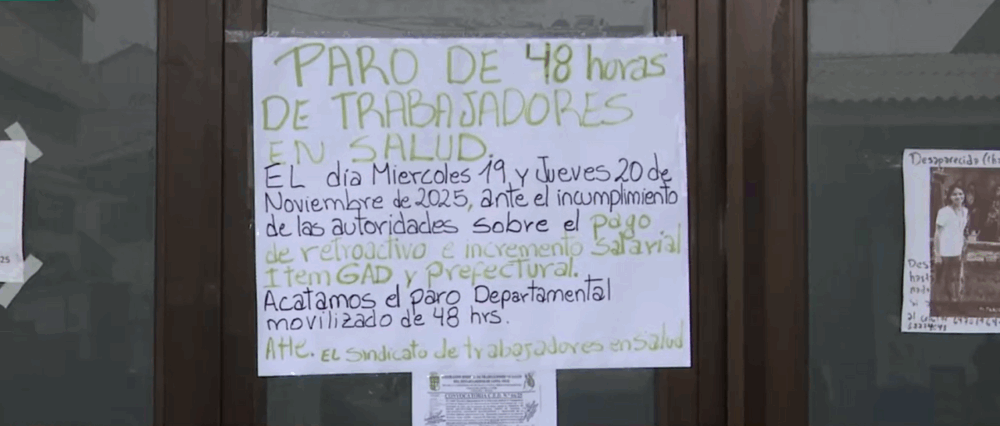 PARO DE 48 horas
DE TRABAJADORES
EN SALUD.
EL día Miercoles 19 y Jueves 20 de
Noviembre de 2025, ante el incumplimiento
de las autoridades sobre el pago
de retroactivo e incremento Salarial
Item GAD y prefectural.
Acatamos el paro Departamental
movilizado de 48 hrs.
Atte. EL Sindicato de trabajadores en Salud
25
Desaparecido
Des
hast